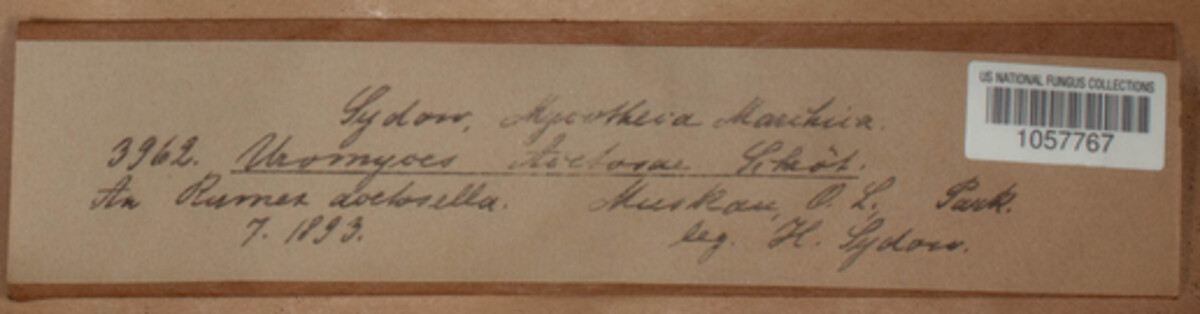 US NATIONAL FUNGUS COLLECTIONS
1057767
Sydow, Mycotheca Marchica.
3962. Uromyces Acetosae Schröt.
An Rumex acetosella. Muskau, O. L., Park.
7. 1893. leg. H. Sydow.